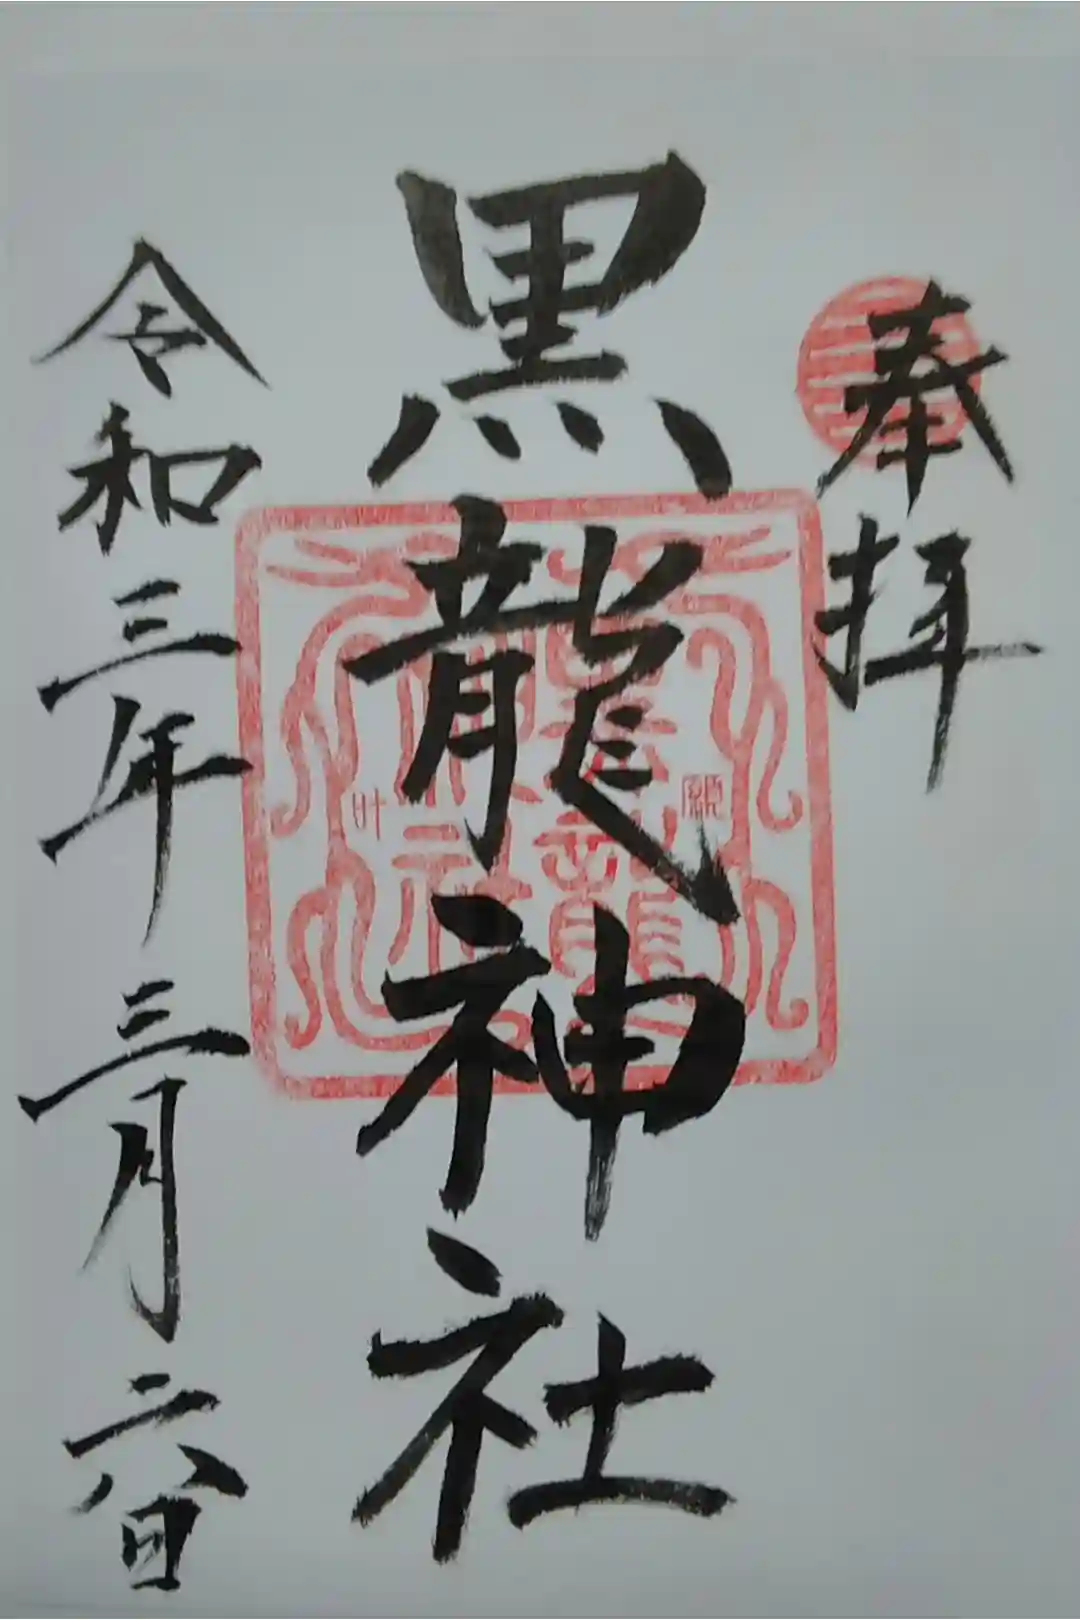 奉拝
黒龍神社
令和三年三月六日